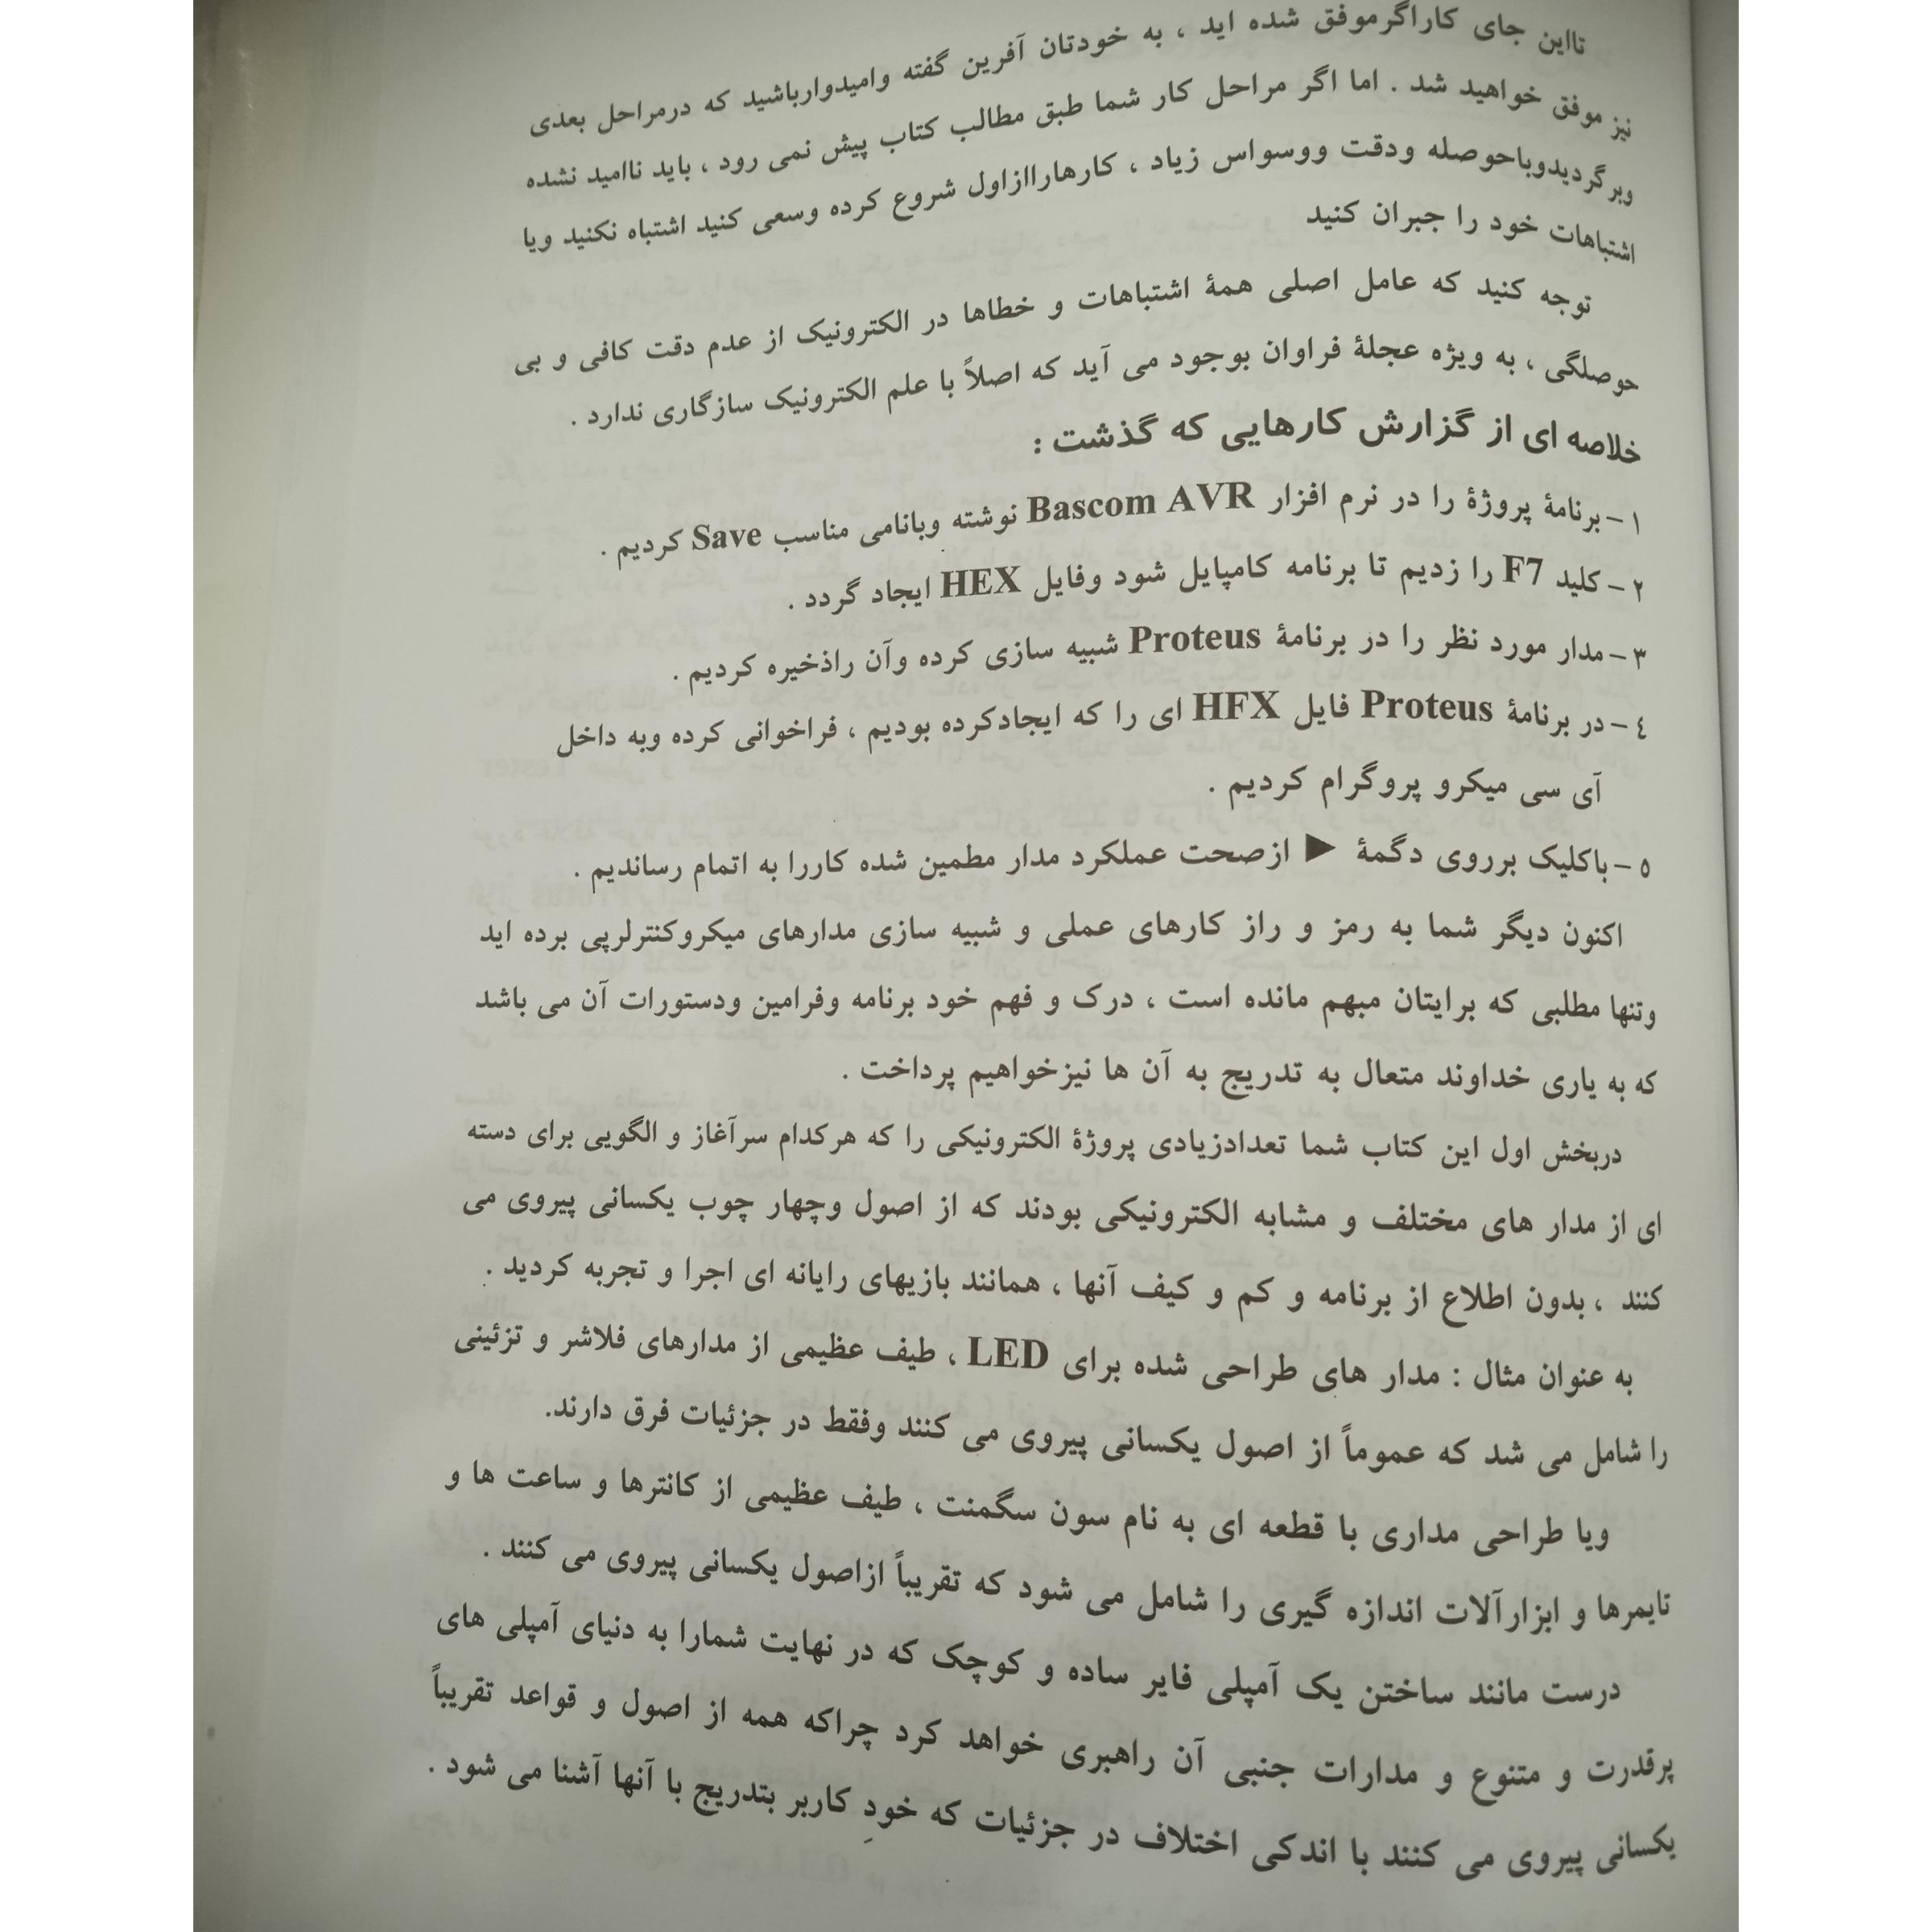 تااین جای کاراگرموفق شده اید ، به خودتان آفرین گفته وامیدوارباشید که درمراحل بعدی
نیز موفق خواهید شد . اما اگر مراحل کار شما طبق مطالب کتاب پیش نمی رود ، باید ناامید نشده
وبرگردیدوباحوصله ودقت ووسواس زیاد ، کارهاراازاول شروع کرده وسعی کنید اشتباه نکنید ویا
اشتباهات خود را جبران کنید
توجه کنید که عامل اصلی همۀ اشتباهات و خطاها در الکترونیک از عدم دقت کافی و بی
حوصلگی ، به ویژه عجلۀ فراوان بوجود می آید که اصلاً با علم الکترونیک سازگاری ندارد .
خلاصه ای از گزارش کارهایی که گذشت :
۱ – برنامۀ پروژۀ را در نرم افزار Bascom AVR نوشته وبانامی مناسب Save کردیم .
۲ – کلید F7 را زدیم تا برنامه کامپایل شود وفایل HEX ایجاد گردد .
۳ – مدار مورد نظر را در برنامۀ Proteus شبیه سازی کرده وآن راذخیره کردیم .
٤ – در برنامۀ Proteus فایل HFX ای را که ایجادکرده بودیم ، فراخوانی کرده وبه داخل
آی سی میکرو پروگرام کردیم .
۵ – باکلیک برروی دگمۀ ► ازصحت عملکرد مدار مطمین شده کاررا به اتمام رساندیم .
اکنون دیگر شما به رمز و راز کارهای عملی و شبیه سازی مدارهای میکروکنترلرپی برده اید
وتنها مطلبی که برایتان مبهم مانده است ، درک و فهم خود برنامه وفرامین ودستورات آن می باشد
که به یاری خداوند متعال به تدریج به آن ها نیزخواهیم پرداخت .
دربخش اول این کتاب شما تعدادزیادی پروژۀ الکترونیکی را که هرکدام سرآغاز و الگویی برای دسته
ای از مدار های مختلف و مشابه الکترونیکی بودند که از اصول وچهار چوب یکسانی پیروی می
کنند ، بدون اطلاع از برنامه و کم و کیف آنها ، همانند بازیهای رایانه ای اجرا و تجربه کردید .
به عنوان مثال : مدار های طراحی شده برای LED ، طیف عظیمی از مدارهای فلاشر و تزئینی
را شامل می شد که عموماً از اصول یکسانی پیروی می کنند وفقط در جزئیات فرق دارند.
ویا طراحی مداری با قطعه ای به نام سون سگمنت ، طیف عظیمی از کانترها و ساعت ها و
تایمرها و ابزارآلات اندازه گیری را شامل می شود که تقریباً ازاصول یکسانی پیروی می کنند .
درست مانند ساختن یک آمپلی فایر ساده و کوچک که در نهایت شمارا به دنیای آمپلی های
پرقدرت و متنوع و مدارات جنبی آن راهبری خواهد کرد چراکه همه از اصول و قواعد تقریباً
یکسانی پیروی می کنند با اندکی اختلاف در جزئیات که خودِ کاربر بتدریج با آنها آشنا می شود .